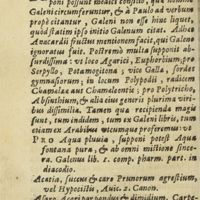 poni possunt medici consilio, quæ nomine
Galeni circumferuntur, & à Paulo ad verbum
propè citantur, Galeni non esse hinc liquet,
quòd statim ipso initio Galenum citat. Adhæc
Avacardii fructus mentionem facit, quæ Galeno
ignorati fuit. Postremò multa supposuit ab-
surdissima: ut loco Agarici, Euphorbium; pro
Serpyllo, Potamogitona; vice Galla, sordes
gymnasiorum; in locum Polypodii, radicem
Chamalææ aut Chamaleontis; pro Polytricho,
Absinthium, & alia eius generis plurima viri-
bus dissimilia. Tamen qua recipienda magis
sunt, tum indidem, tum ex Galeni libris, tum
etiam ex Arabibus utcumque proferemus: ut
PRO Aqua pluvia, supponi potest Aqua
fontana pura, & ab omnibus mixtionibus since-
ra. Galenus lib. 1. comp. pharm. part. in
diacodio.
Acatia, succus è care Prunorum agrestium,
vel Hypocistis, Avic. 2. Canon.